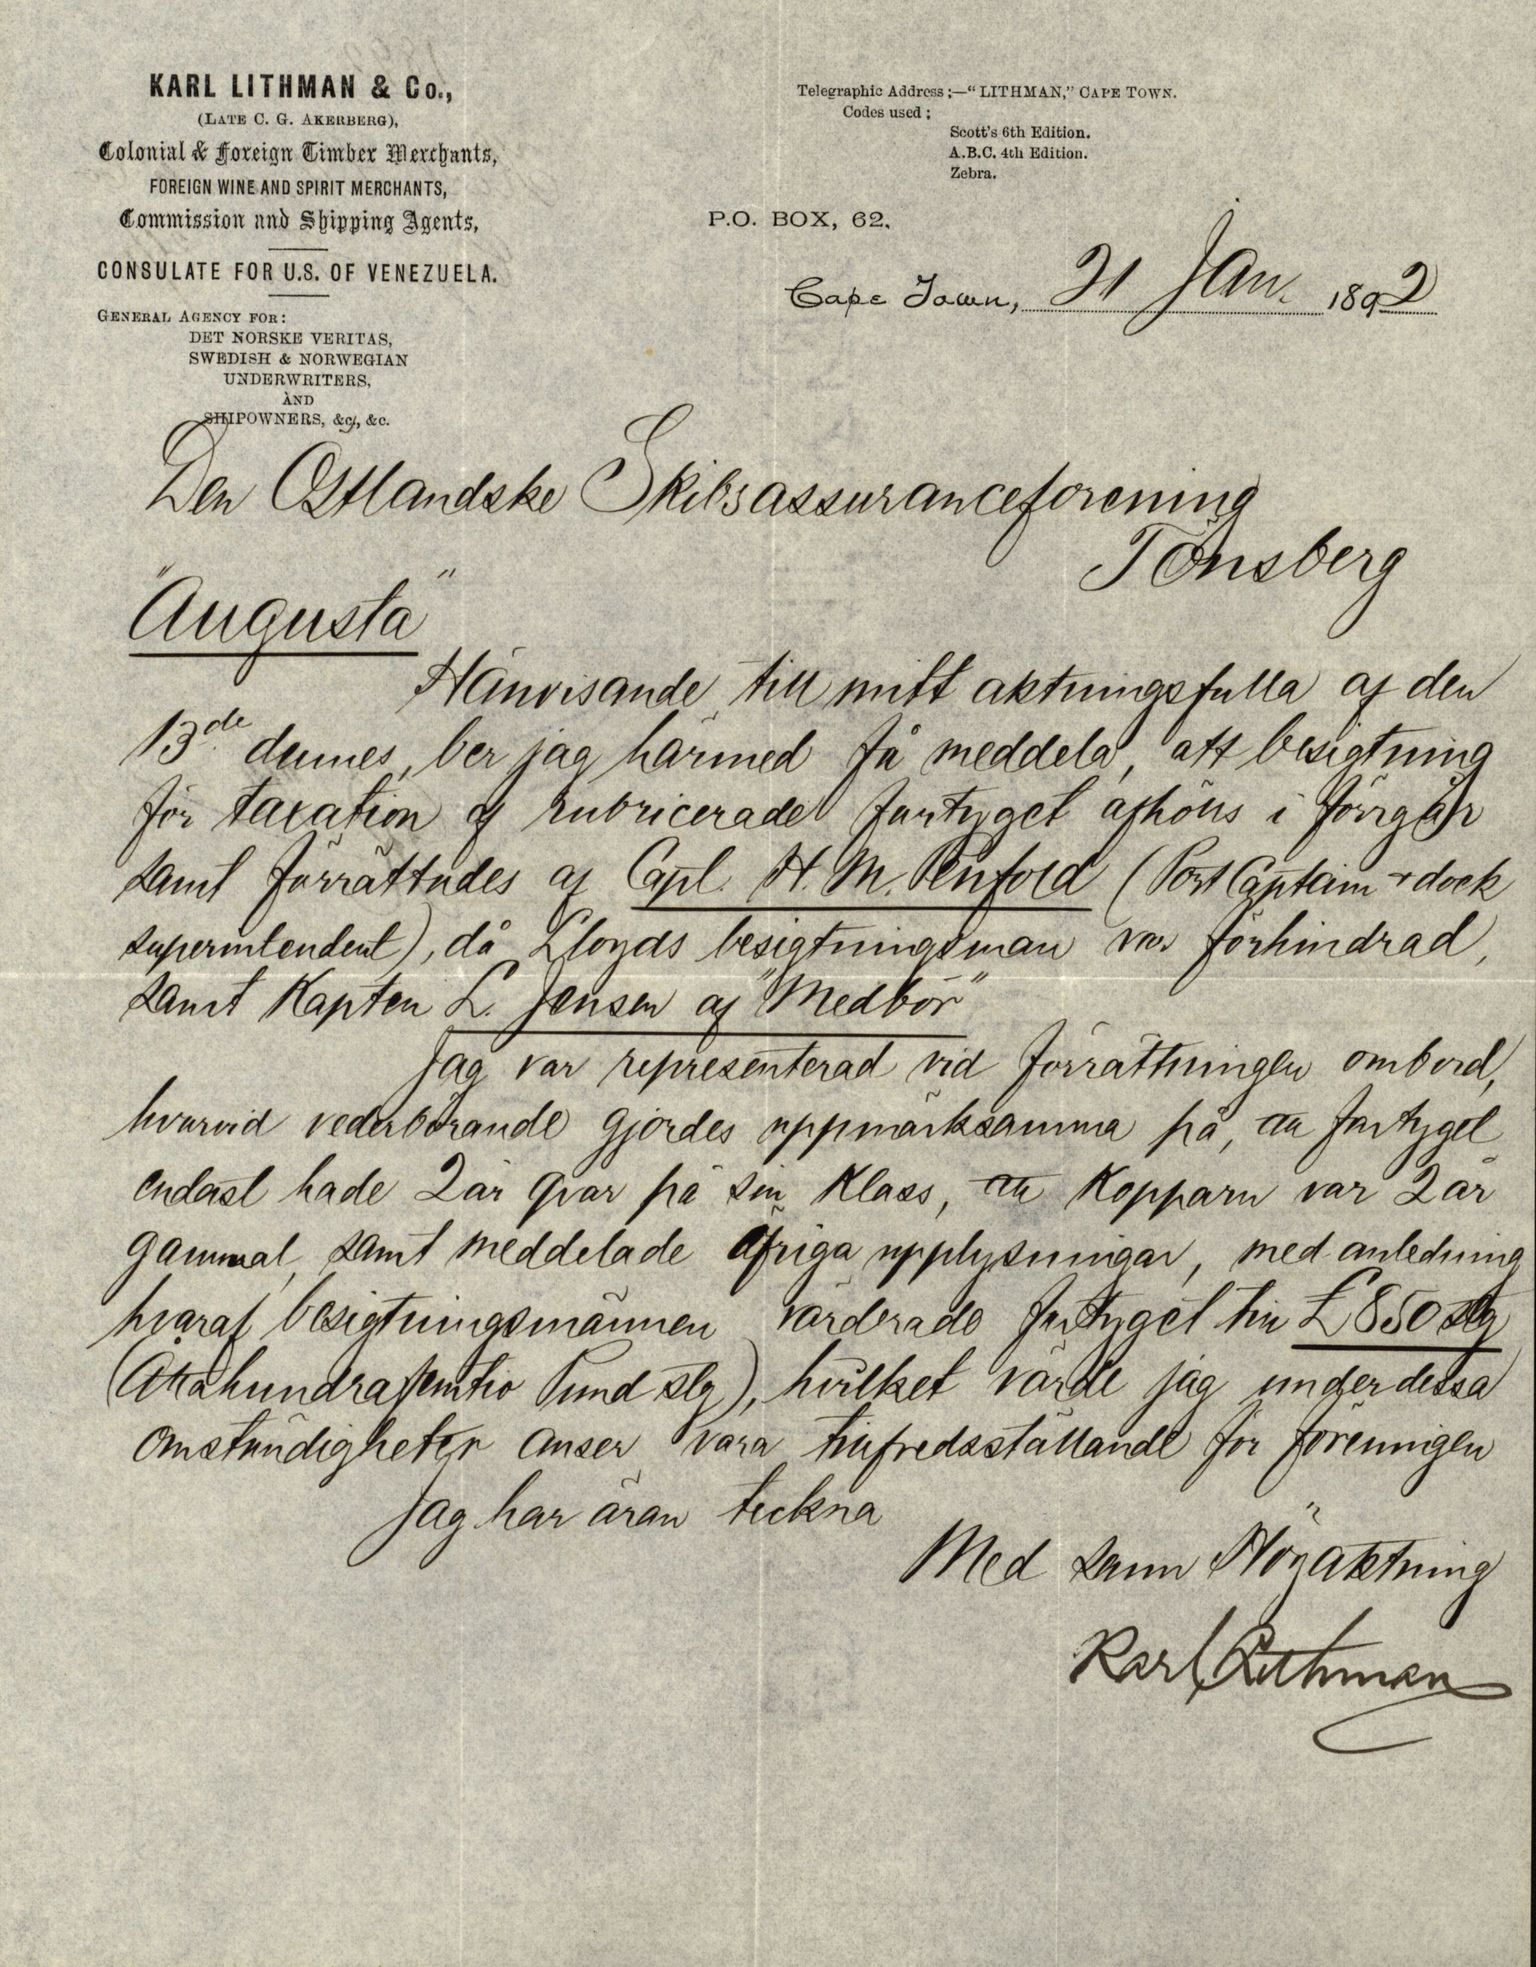 KARL LITHMAN & Co.,
(LATE C. G. AKERBERG),
Colonial & Foreign Timber Merchants,
FOREIGN WINE AND SPIRIT MERCHANTS,
Commission and Shipping Agents,
CONSULATE FOR U.S. OF VENEZUELA.
GENERAL AGENCY FOR:
DET NORSKE VERITAS,
SWEDISH & NORWEGIAN
UNDERWRITERS,
AND
SHIPOWNERS, &c., &c.
Telegraphic Address;—"LITHMAN," CAPE TOWN.
Codes used;
Scott's 6th Edition.
A.B.C. 4th Edition.
Zebra.
P.O. BOX, 62.
Cape Town, 21 Jan. 1892
Den Ostlandske Skibsassuranceforening
Tönsberg
"Augusta"
Hänvisande till mitt aktningsfulla af den
13de dennes, ber jag härmed få meddela, att besigtning
för taxation af rubricerade fartyget afhölls i förrgår
samt förrättades af Capt. H. M. Penfold (Port Captain + dock
superintendent), då Lloyds besigtningsman var förhindrad,
samt Kapten L. Jensen af "Medbör"
Jag var representerad vid förrättningen ombord,
hvarvid vederbörande gjordes uppmärksamma på, att fartyget
endast hade 2 år qvar på sin klass, att kopparn var 2 år
gammal, samt meddelade öfriga upplysningar, med anledning
hvaraf besigtningsmännen värderade fartyget till £850 stg
(Åttahundrafemtio Pund stg), hvilket värde jag under dessa
omständigheter anser vara tillfredsställande för föreningen
Jag har äran teckna
Med sann Högaktning
Karl Lithman